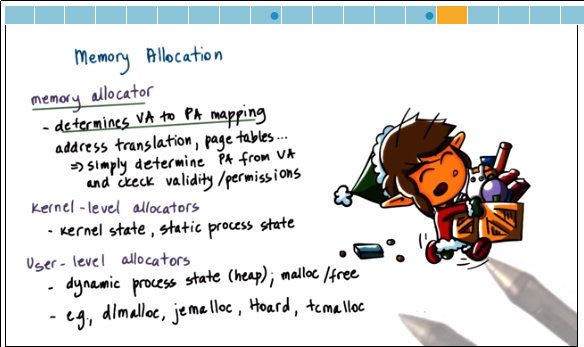 Memory Allocation
memory allocator
- determines VA to PA mapping
address translation, page tables...
⇒ simply determine PA from VA
and check validity/permissions
Kernel-level allocators
- kernel state, static process state
User-level allocators
- dynamic process state (heap); malloc/free
- e.g., dlmalloc, jemalloc, Hoard, tcmalloc